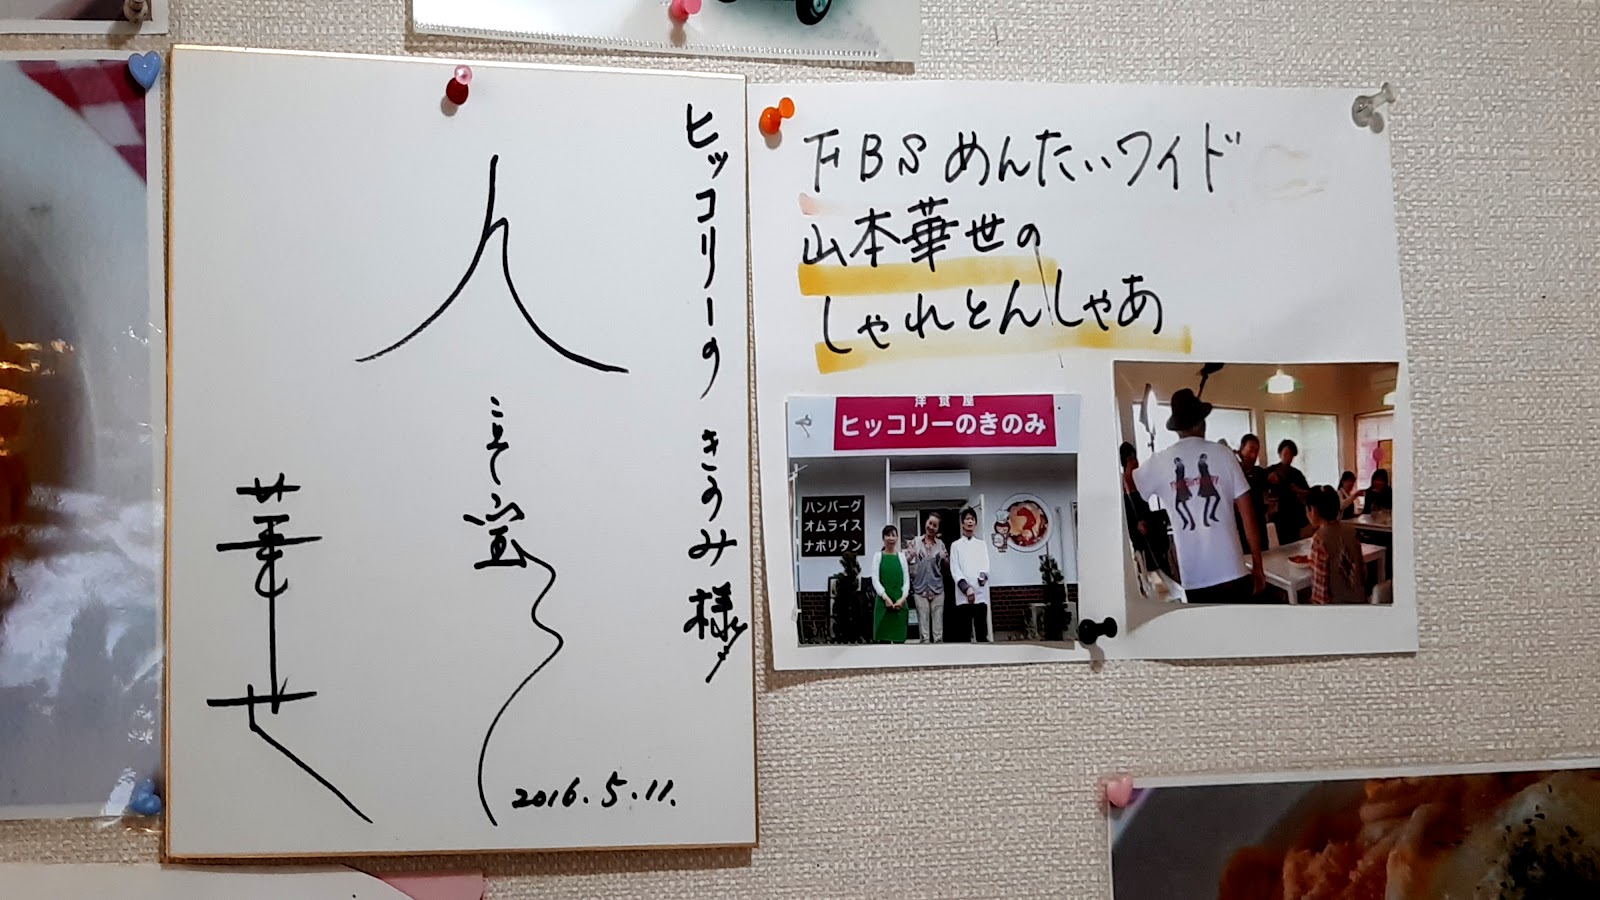 ヒッコリーの きのみ様
人
こそ宝
華世
2016.5.11.
FBSめんたいワイド
山本華世の
しゃれとんしゃあ
洋食屋
ヒッコリーのきのみ
ハンバーグ
オムライス
ナポリタン